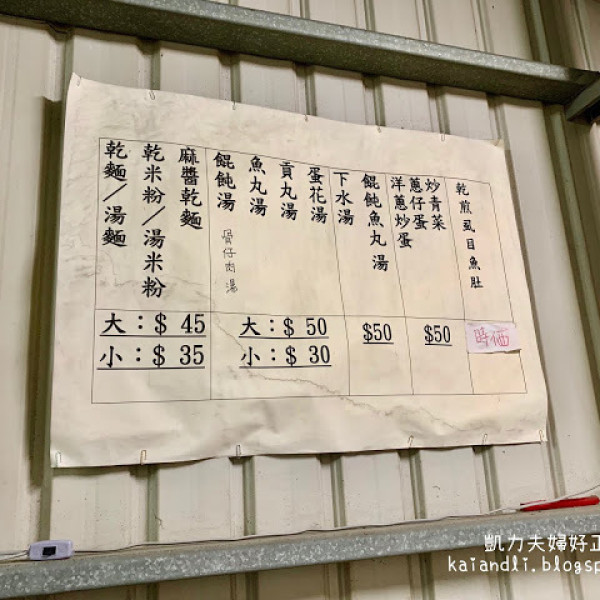 乾煎虱目魚肚
炒青菜
蔥仔蛋
洋蔥炒蛋
餛飩魚丸湯
下水湯
蛋花湯
貢丸湯
魚丸湯
餛飩湯
骨仔肉湯
麻醬乾麵
乾米粉/湯米粉
乾麵/湯麵
大:$ 45
小:$ 35
大:$ 50
小:$ 30
$50
$50
時価
凱力夫婦好正
kaiandli.blogsp